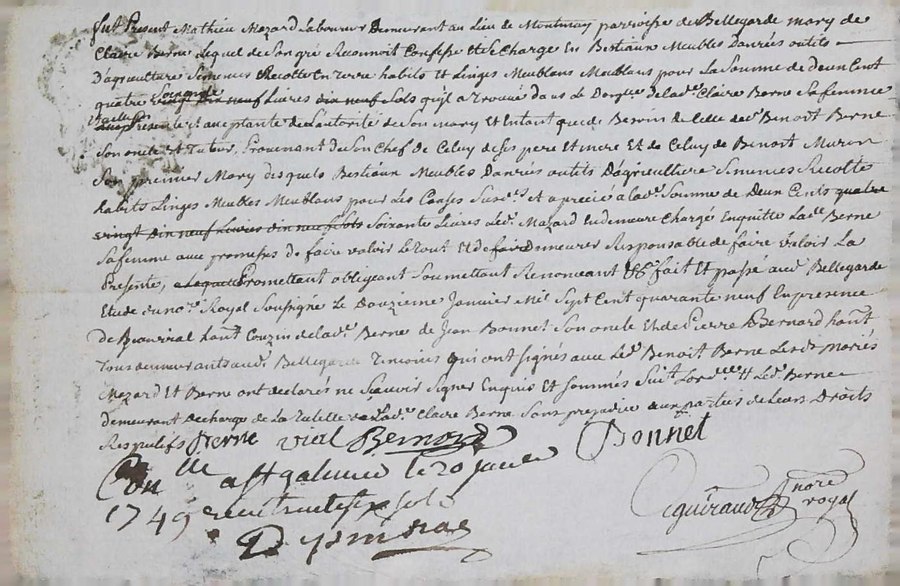 fut Present Mathieu Mozard Laboureur Demeurant au Lieu de Montmay parroisse de Bellegarde mary de
Claire Berne Lequel de son gré Reconnoit Confesse et se Charge En Bestiaux Meubles Danrées outils
D'agriculture Semences Recolte En terre habits Et Linges Meublans Meublans pour La Somme de Deux Cent
quatre vingt dix neuf Livres dix neuf Sols qu'il a trouvé dans Le de lad.e Claire Berne Sa femme
soixante
presente et aceptante de L'autorité de Son mary et Entant que de Besoin de Celle de Benoit Berne
Son oncle et Tuteur, provenant du Son Chef de Celuy de Ses pere et mere Et de Celuy de Benoit Muron
Son premier Mary desquels Bestiaux Meubles Danrées outils D'agriculture Semences Recolte
habits Linges Meubles Meublans pour Les Causes Sus.es et aprecié a lad. Somme de Deux Cents quatre
vingt dix neuf Livres dix neuf Sols Soixante Livres Led. Mozard En demeure Chargé Enquitte Lad.e Berne
Sa femme aux promesses de faire valoir Le tout Et de faire demeurer Responsable de faire valoir La
Presente, Promettant obligeant Soumettant Renonceant fait Et passé aud. Bellegarde
Etude du no.re Royal Soussigné Le Douzieme Janvier Mil Sept Cent quarante neuf En presence
De vial hant Couzin de lad.e Berne de Jean Bonnet Son oncle Et de Pierre Bernard hant
tous demeurants aud. Bellegarde Temoins qui ont signés avec Led. Benoit Berne Lesd. mariés
Mozard Et Berne ont declarés ne Sçavoir Signer Enquis Et Sommés Suit Lord.ce Led. Berne
demeurant decharge de La tutelle de Lad.e Claire Berne Sans prejudice aux parties de Leurs Droits
Respectifs Berne vial Bernard Bonnet
Con.lle a St galmier le 20 janvier
1749 trente six sols
guéraud no.re
royal